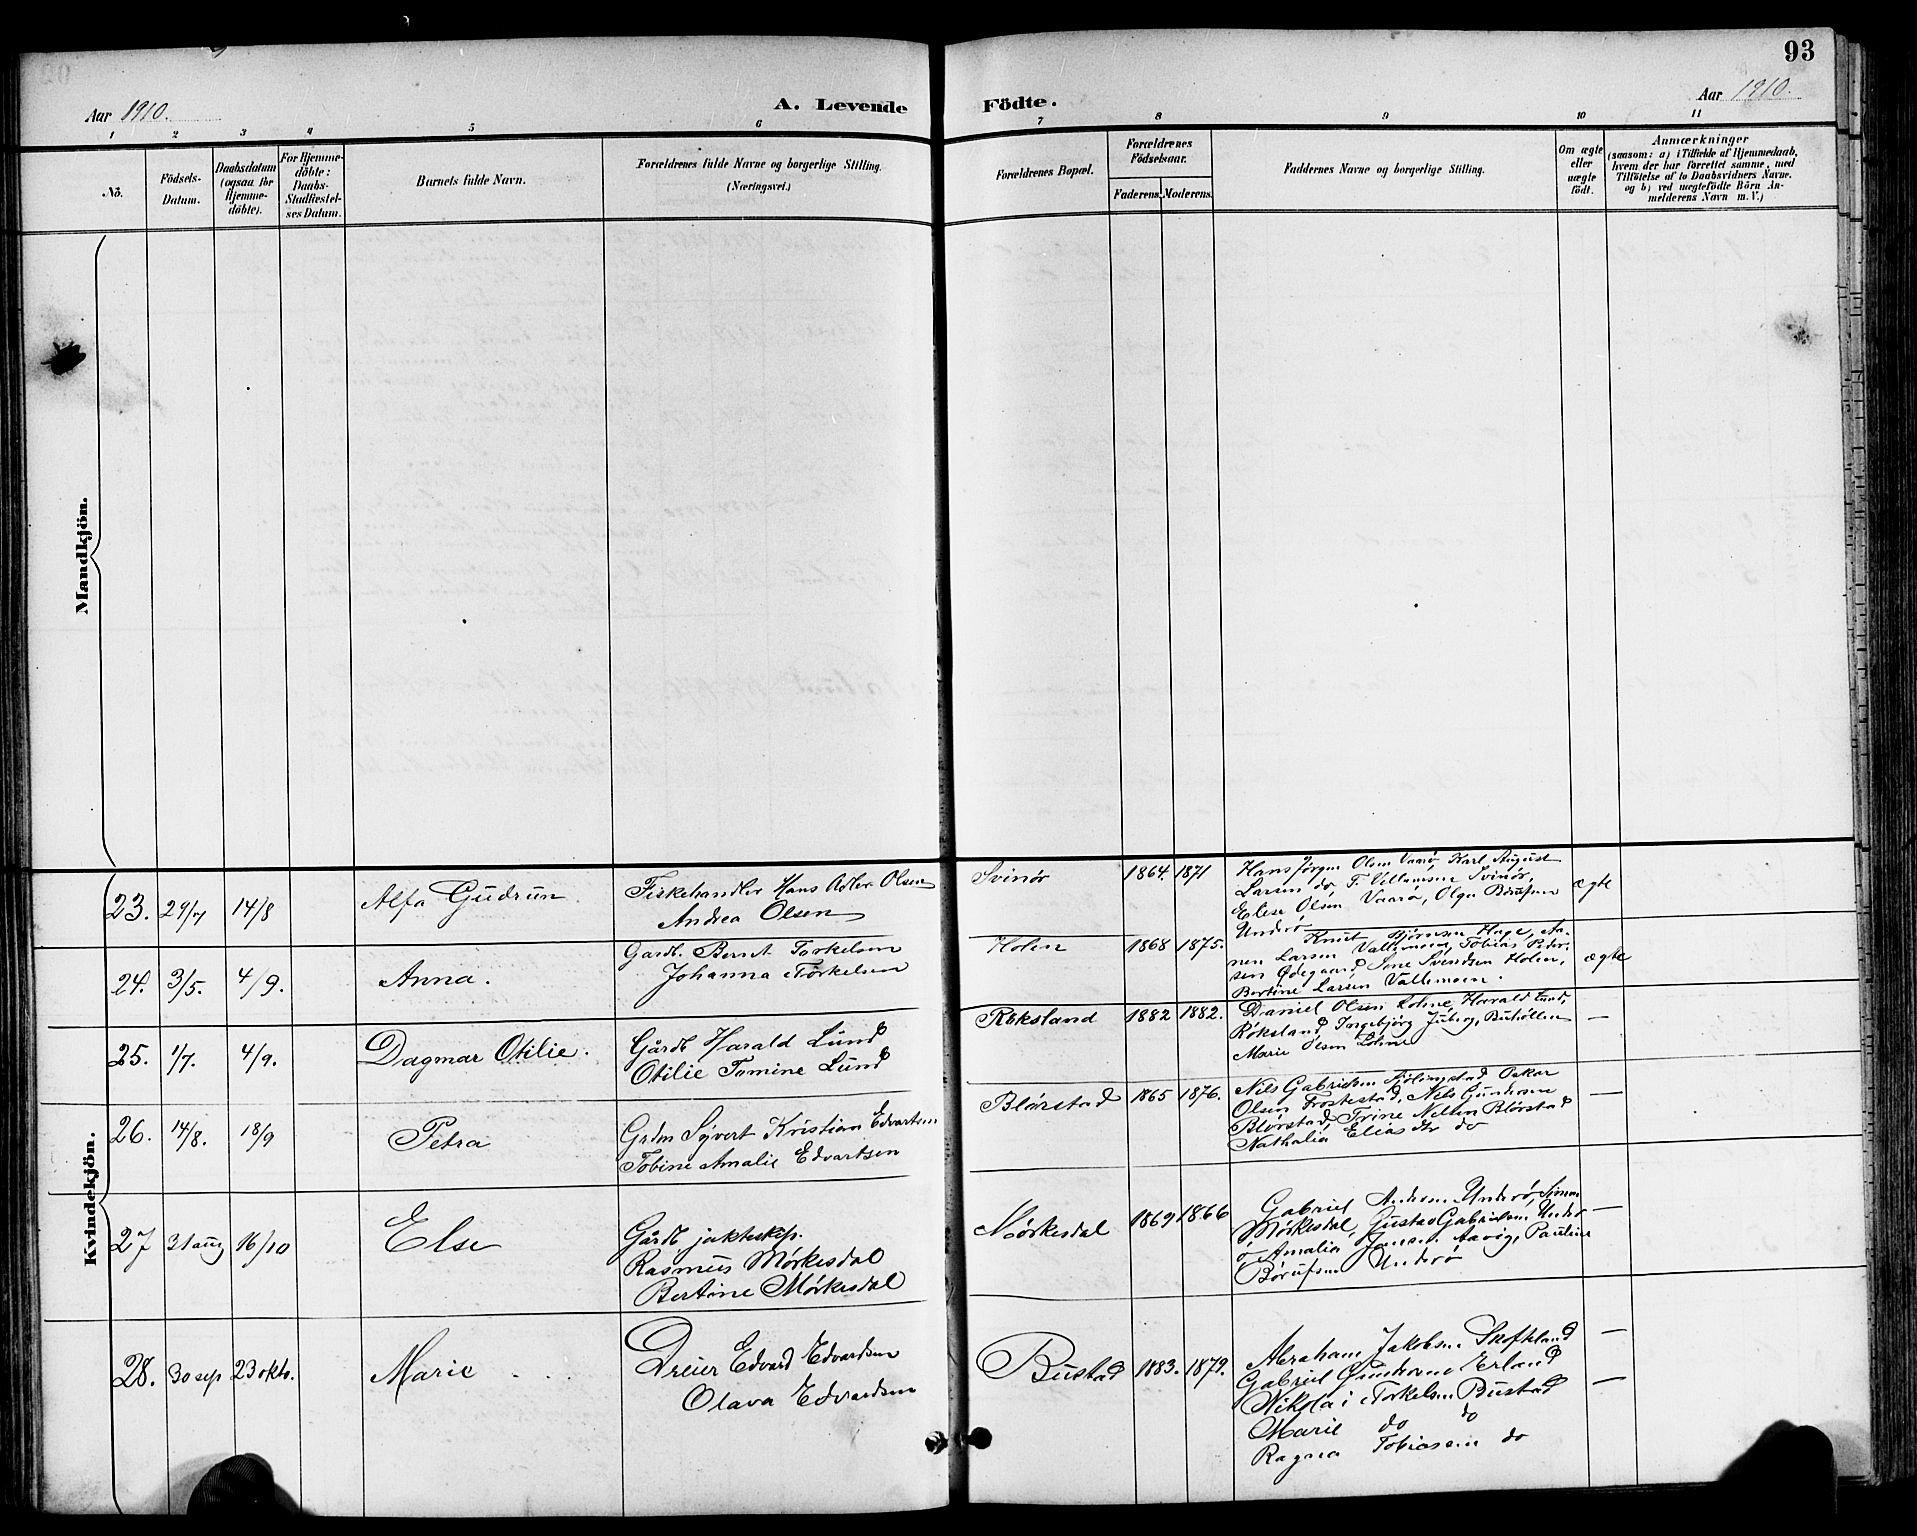 93
Aar 1910.
A. Levende Födte.
Aar 1910.
1 2 3 4 5 6 7 8 9 10 11
No.
Födsels-Datum.
Daabsdatum (ogsaa for Hjemme-döbte).
For Hjemme-döbte: Daabs-Stadfæstel-ses Datum.
Barnets fulde Navn.
Forældrenes fulde Navne og borgerlige Stilling.
(Næringsvei.)
Forældrenes Bopæl.
Forældrenes Födselsaar.
Faderens. Moderens.
Faddernes Navne og borgerlige Stilling.
Om ægte eller uægte födt.
Anmærkninger
(saasom: a) i Tilfælde af Hjemmedaab,
hvem der har forrettet samme, med
Tilföielse af to Daabsvidners Navne,
og b) ved uægtefödte Börn An-
melderens Navn m. V.)
Mandkjön.
Kvindekjön.
23. 29/7 14/8 Alfa Gudrun Fiskehandler Hans Adler Olsen
Andrea Olsen
Svinör 1864. 1871
Hans Jørgen Olsen Vaarø, Karl August
Larsen do F. Villumsen Svinör,
Elise Olsen Vaarø, Olga Børufsen
Underø
ægte
24. 3/5. 4/9. Anna. Gardb. Bernt Torkelsen
Johanna Torkelsen
Holen 1868 1875.
Knut Bjørnsen Hage, An-
nen Larsen Vallemoen, Tobias Peder-
sen Ødegaard, Sene Svendsen Holen,
Bertine Larsen Vallemoen.
ægte
25. 1/7. 4/9. Dagmar Otilie. Gårdb Harald Lund
Otilie Tomine Lund
Røksland 1882 1882.
Daniel Olsen Lohne, Harald Lund,
Røksland, Ingebjørg Juberg, Buhöllen
Marie Olsen Lohne
—
26. 14/8. 18/9 Petra Grdm Syvert Kristian Edvartsen
Tobine Amalie Edvartsen
Blørstad 1865 1876.
Nils Gabrielsen Sjølingstad Oskar
Olsen Frostestad, Nils Gundersen
Blørstad, Trine Nilsen Blørstad
Nathalia Elias dtr do
—
27 31 aug 16/10 Else Gårdb jakteskip.
Rasmus Mörkesdal
Bertine Mörkesdal
Mörkesdal 1869 1866
Gabriel Andersen Underø, Simon
Mörkesdal, Gustav Gabrielsen Under
ø Amalia Jansen Aavig, Pauline
Børufsen Underø
—
28. 30 sep 23 okto. Marie Dreier Edvard Edvardsen
Olava Edvardsen
Bustad 1883. 1879.
Abraham Jakobsen Skofteland
Gabriel Gundersen Erland
Nikolai Torkelsen Bustad
Marie do do
Ragna Tobiasen do
—
—